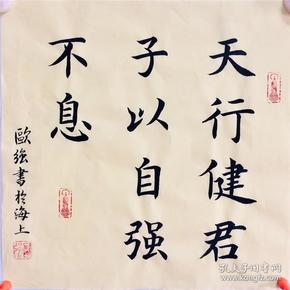 天行健君
子以自强
不息
歐強書於海上
孔夫子旧书网